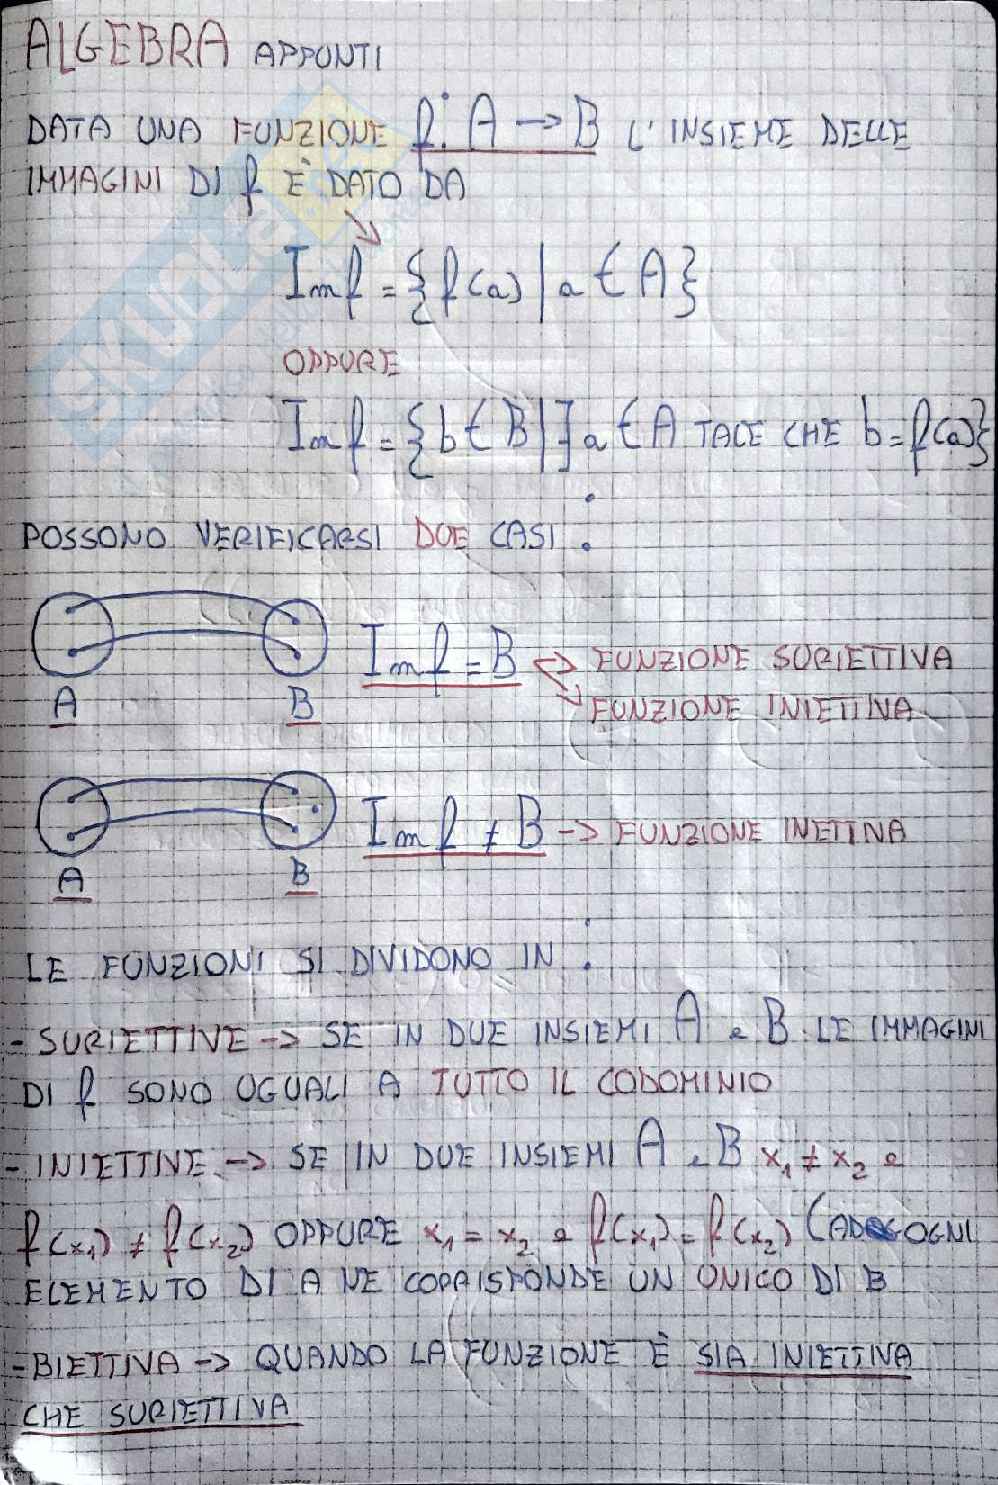 ALGEBRA APPUNTI
DATA UNA FUNZIONE f: A → B L'INSIEME DELLE
IMMAGINI DI f È DATO DA
Im f = {f(a) | a ∈ A}
OPPURE
Im f = {b ∈ B | ∃ a ∈ A TALE CHE b = f(a)}
POSSONO VERIFICARSI DUE CASI :
Im f = B → FUNZIONE SURIETTIVA
→ FUNZIONE INIETTIVA
A B
Im f ≠ B -> FUNZIONE INETTIVA
A B
LE FUNZIONI SI DIVIDONO IN :
- SURIETTIVE -> SE IN DUE INSIEMI A e B LE IMMAGINI
DI f SONO UGUALI A TUTTO IL CODOMINIO
- INIETTIVE -> SE IN DUE INSIEMI A e B x₁ ≠ x₂ e
f(x₁) ≠ f(x₂) OPPURE x₁ = x₂ e f(x₁) = f(x₂) (AD OGNI
ELEMENTO DI A NE CORRISPONDE UN UNICO DI B
- BIETTIVA -> QUANDO LA FUNZIONE È SIA INIETTIVA
CHE SURIETTIVA
SKUOLA.net